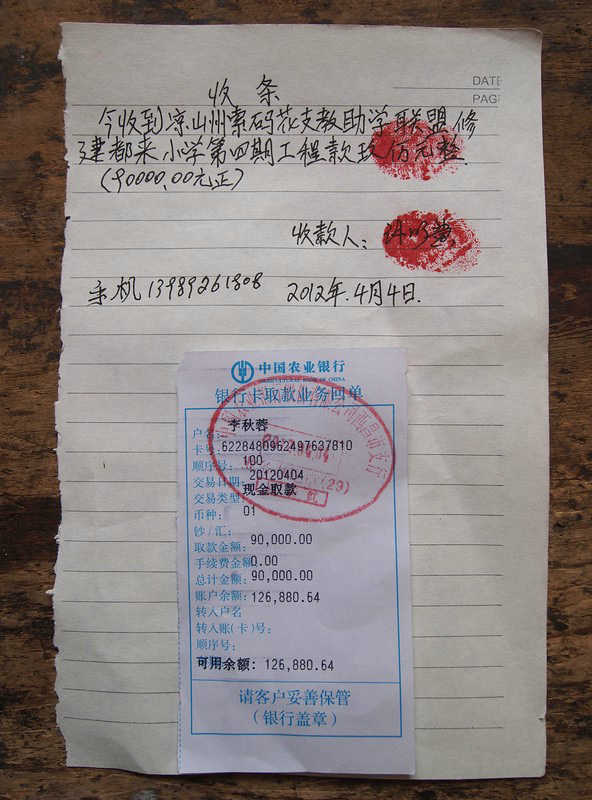 DATE
PAG
收条
今收到凉山州索玛花支教助学联盟修
建都来小学第四期工程款玖仟元整
(90000.00元正)
收款人:
手机 13989261808 2012年.4月4日.
中国农业银行
AGRICULTURAL BANK OF CHINA
银行卡取款业务回单
户名: 李秋蓉
卡号: 6228480962497637810
顺序号: 100
交易日期: 20120404
交易类型: 现金取款
币种: 01
钞/汇:
取款金额: 90,000.00
手续费金额: 0.00
总计金额: 90,000.00
账户余额: 126,880.64
转入户名
转入账(卡)号:
顺序号:
可用余额: 126,880.64
请客户妥善保管
(银行盖章)